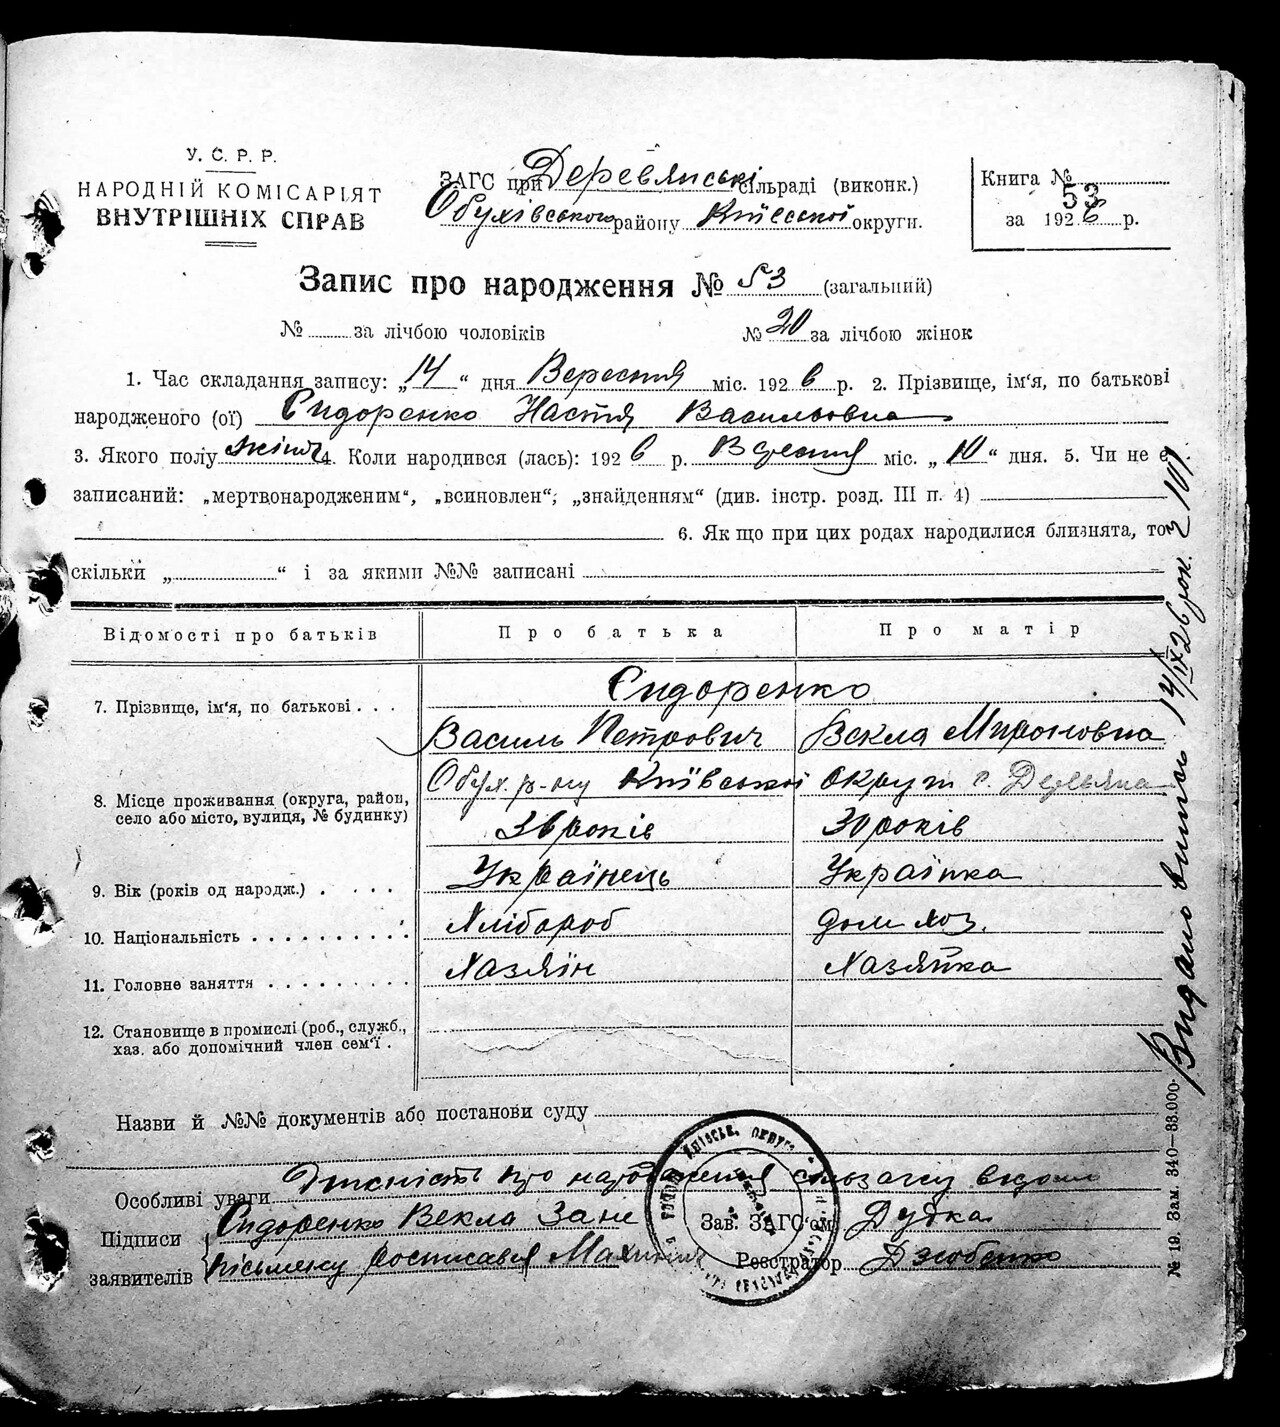 У. С. Р. Р.
НАРОДНІЙ КОМІСАРІЯТ
ВНУТРІШНІХ СПРАВ
ЗАГС при Деревянські сільраді (виконк.)
Обухівського району Київської округи.
Книга №
53
за 1926 р.
Запис про народження № 53 (загальний)
№ за лічбою чоловіків № 20 за лічбою жінок
1. Час складання запису: „14“ дня Вересня міс. 1926 р. 2. Прізвище, ім'я, по батькові
народженого (ої) Сидоренко Настя Васильовна
3. Якого полу жіноч 4. Коли народився (лась): 1926 р. Вересня міс. „10“ дня. 5. Чи не є
записаний: „мертвонародженим“, „всиновлен“, „знайденням“ (див. інстр. розд. III п. 4)
6. Як що при цих родах народилися близнята, то
скільки „ “ і за якими №№ записані
Відомості про батьків Про батька Про матір
Сидоренко
7. Прізвище, ім'я, по батькові . . .
Василь Петрович Векла Мироновна
Обух. р-ну Київської округи с. Деревяна
8. Місце проживання (округа, район,
село або місто, вулиця, № будинку)
36 років 30 років
9. Вік (років од народж.) . . . .
Українець Українка
10. Національність . . . . . . . . . .
Хлібороб дом хоз.
11. Головне заняття . . . . . . . . .
Хазяїн Хазяйка
12. Становище в промислі (роб., служб.,
хаз. або допомічний член сем'ї .
Назви й №№ документів або постанови суду
Особливі уваги про народження сільзагсу відомо
Підписи
заявителів
Сидоренко Векла За не
письмену росписався
Зав. ЗАГС'ом Дудка
Реєстратор Дзюбенко
Видано випись 14/IX 26 рок. 2 107.
№ 19. Зам. 340—88.000